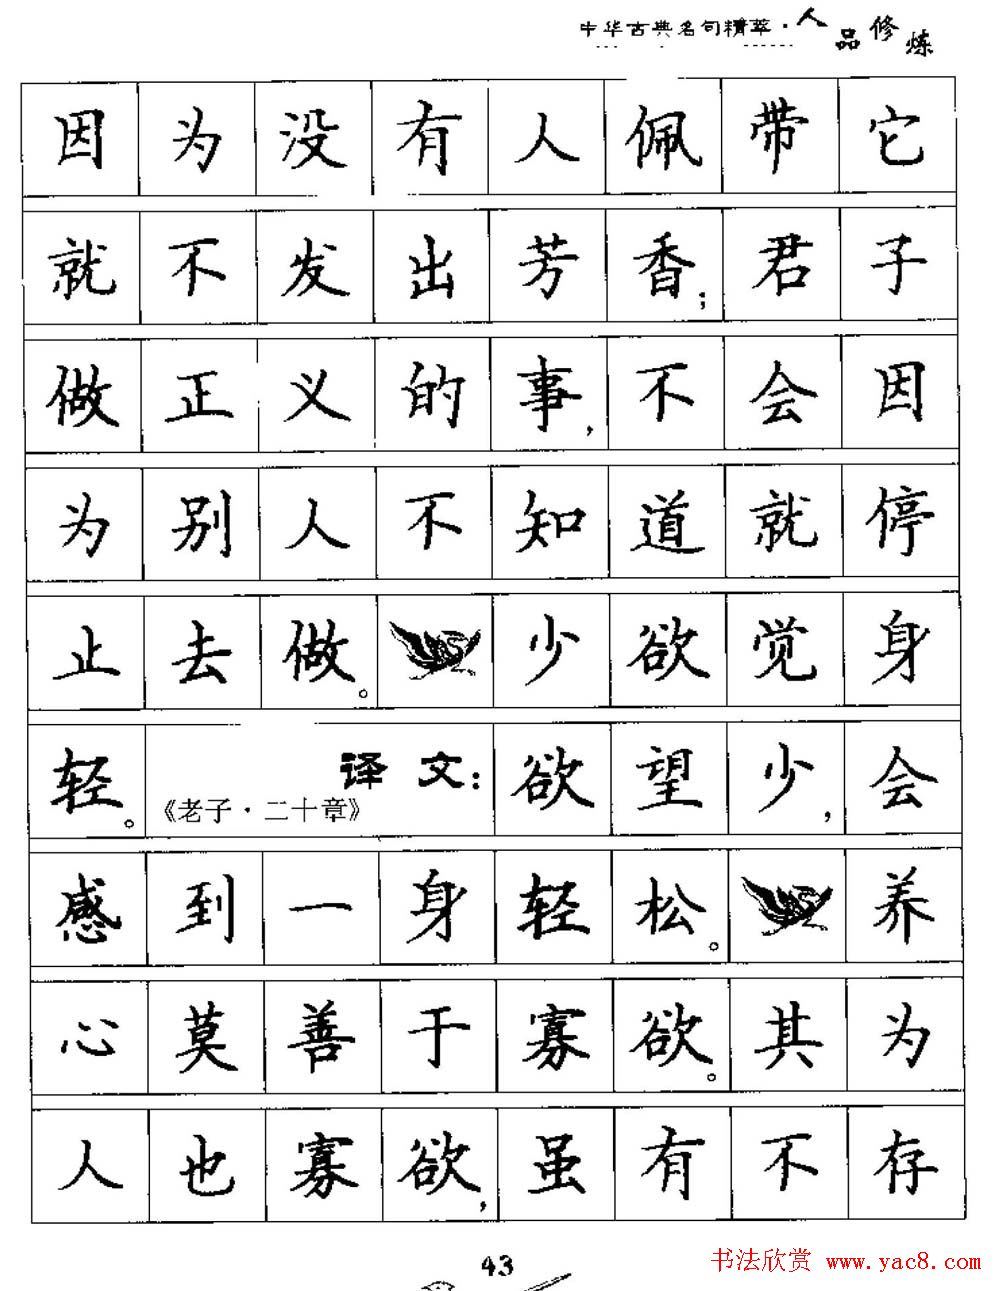 中华古典名句精萃·人品修炼
因为没有人佩带它
就不发出芳香;君子
做正义的事,不会因
为别人不知道就停
止去做。少欲觉身
轻。《老子·二十章》译文:欲望少,会
感到一身轻松。养
心莫善于寡欲。其为
人也寡欲,虽有不存
43
书法欣赏 www.yac8.com